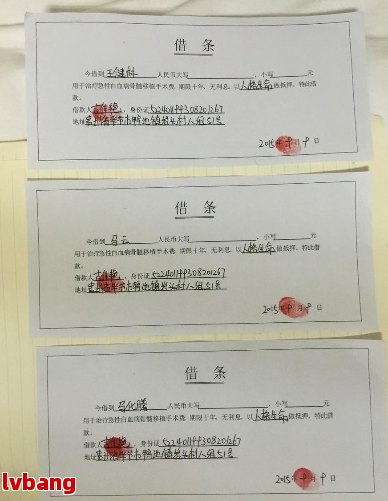 借 条
今借到 王健林 人民币大写 , 小写 元
用于治疗急性白血病骨髓移植手术费, 期限十年, 无利息, 以 人格生命 做抵押, 特此借
款。
借款人 , 身份证 522401199308201267
地址
2015年9月9日
借 条
今借到 马云 人民币大写 , 小写 元
用于治疗急性白血病骨髓移植手术费, 期限十年, 无利息, 以 人格生命 做抵押, 特此借
款。
借款人 , 身份证 522401199308201267
地址
2015年9月9日
借 条
今借到 马化腾 人民币大写 , 小写 元
用于治疗急性白血病骨髓移植手术费, 期限十年, 无利息, 以 人格生命 做抵押, 特此借
款。
借款人 , 身份证 522401199308201267
地址
2015年9月9日
lvbang